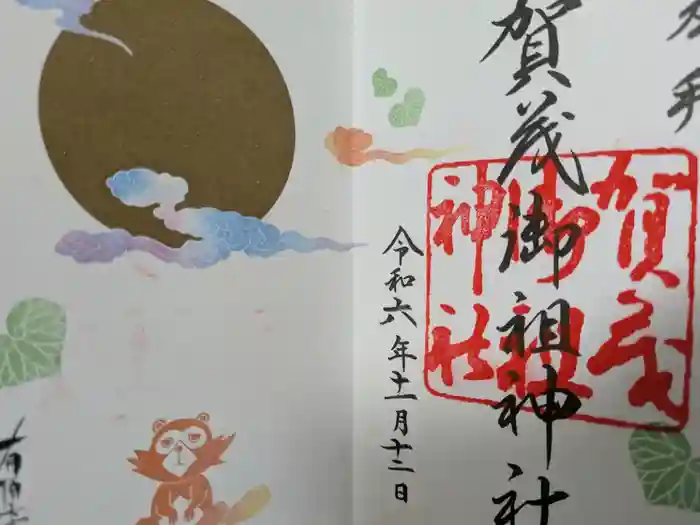 賀茂御祖神社
賀茂
御祖
神社
令和六年十一月十二日